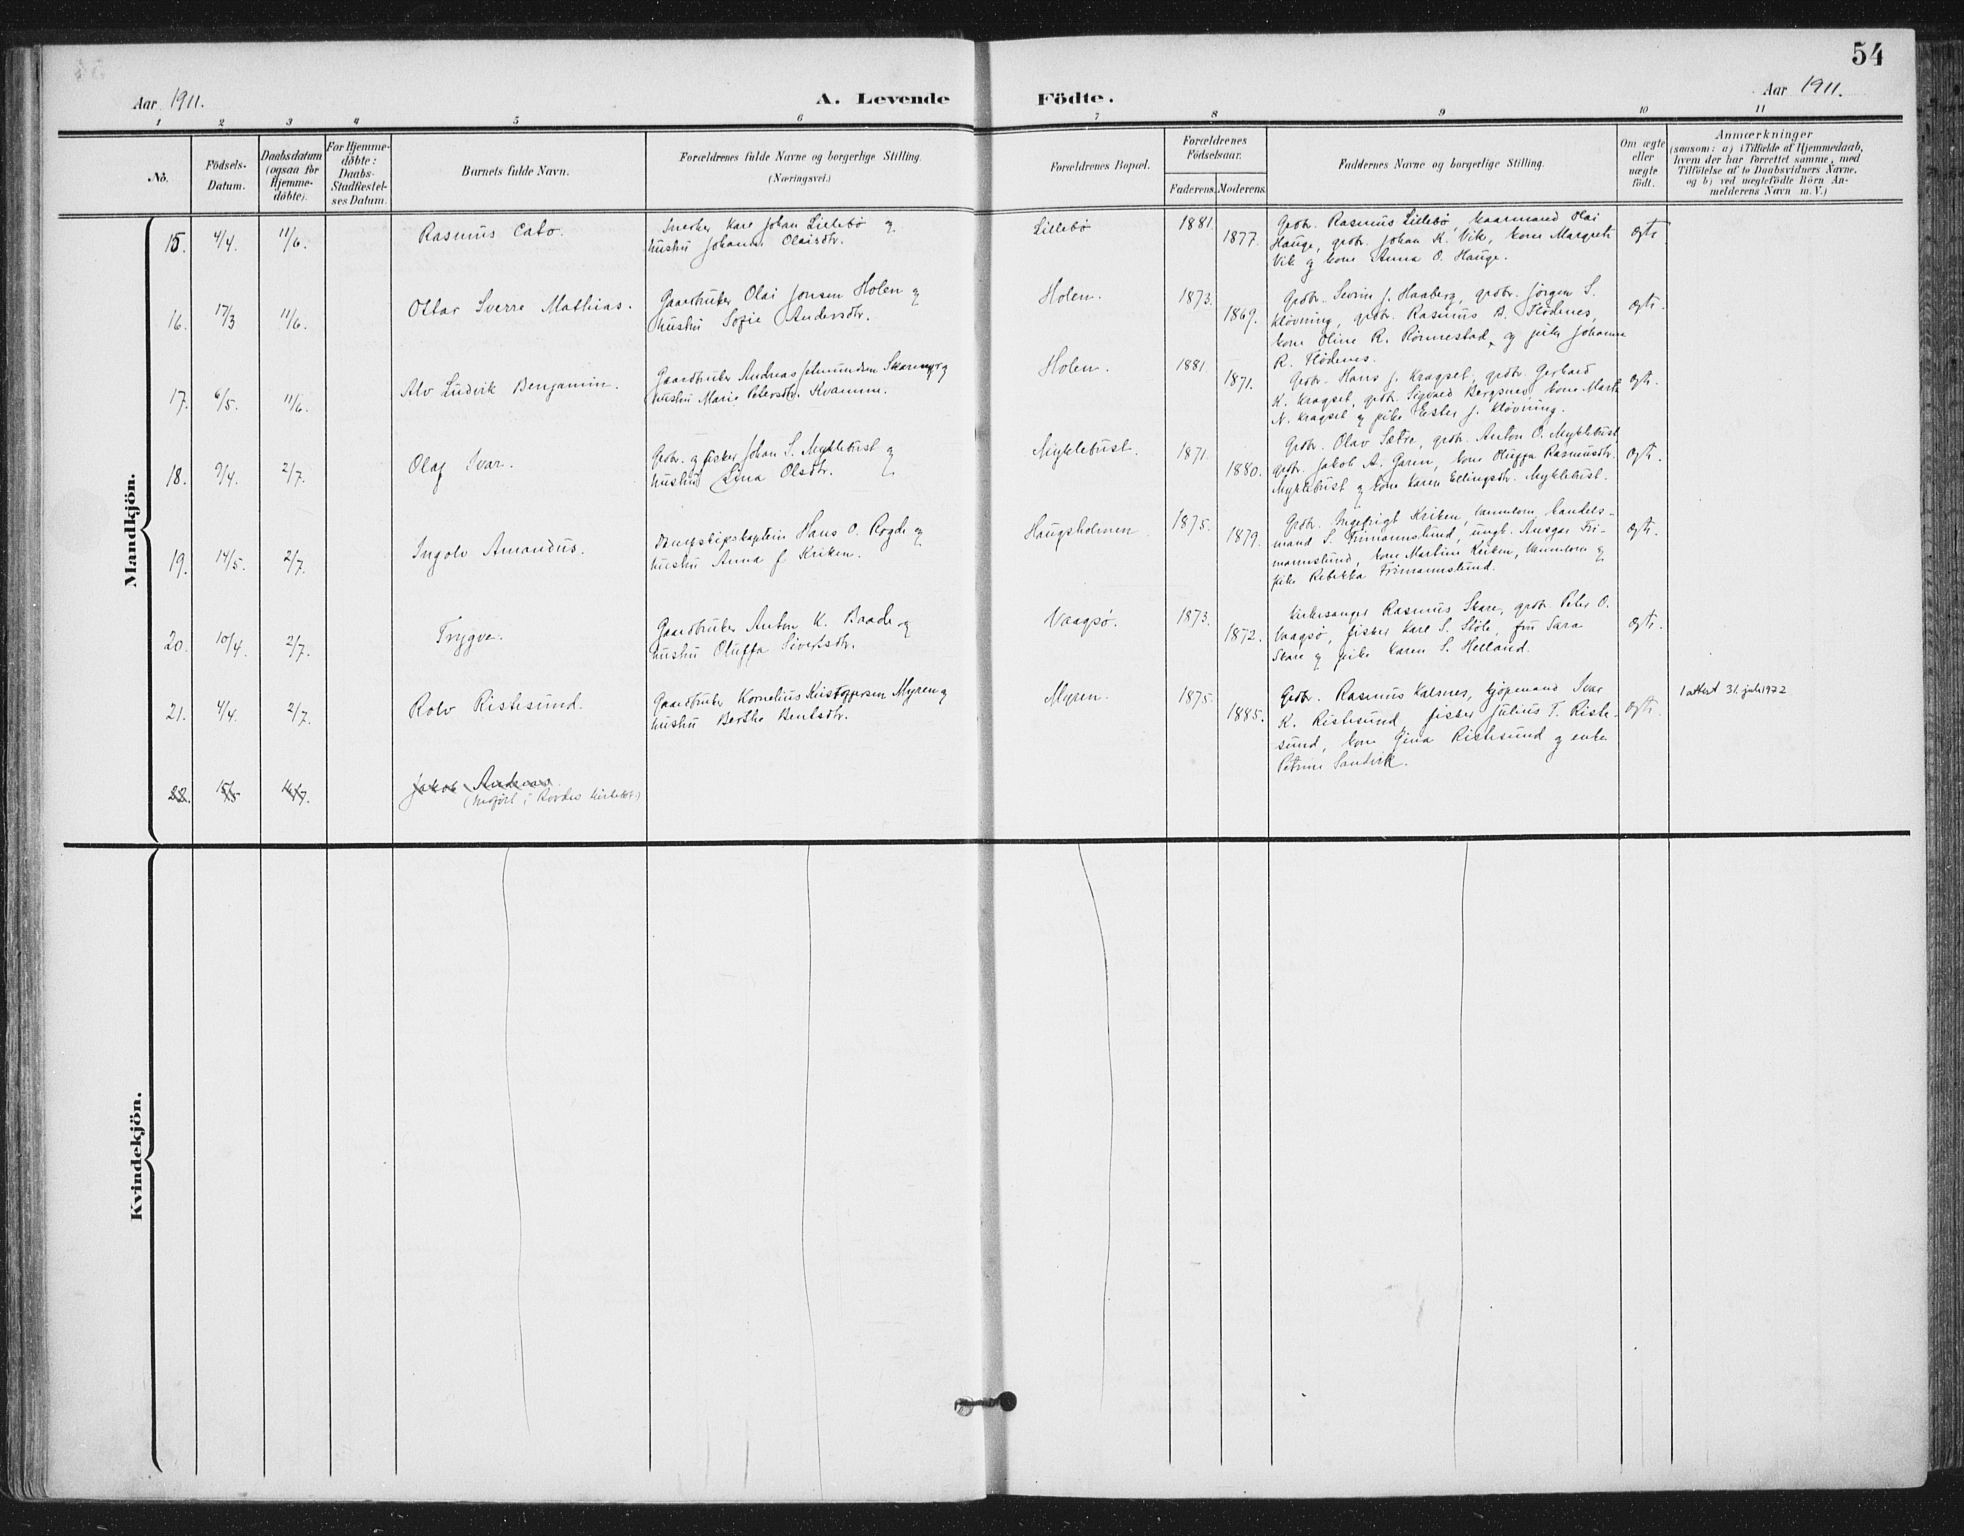 54
Aar 1911.
A. Levende Födte.
Aar 1911.
1 2 3 4 5 6 7 8 9 10 11
No.
Födsels-
Datum.
Daabsdatum
(ogsaa for
Hjemme-
döbte).
For Hjemme-
döbte:
Daabs-
Stadfæstel-
ses Datum.
Barnets fulde Navn.
Forældrenes fulde Navne og borgerlige Stilling.
(Næringsvei.)
Forældrenes Bopæl.
Forældrenes
Födselsaar.
Faderens. Moderens.
Faddernes Navne og borgerlige Stilling.
Om ægte
eller
uægte
födt.
Anmærkninger
(saasom: a) i Tilfælde af Hjemmedaab,
hvem der har forrettet samme, med
Tilföielse af to Daabsvidners Navne,
og b) ved uægtefödte Börn An-
melderens Navn m. V.)
Mandkjön.
15. 4/4. 11/6. Rasmus Cato.
Snedker Kare Johan Lillebø og
hustru Johanne Olaisdtr.
Lillebø 1881. 1877.
Grdbr. Rasmus Lillebø, kaarmand Olai
Hauge, grdbr. Johan K. Vik, kone Margrete
Vik og kone Anna O. Hauge.
ægte
16. 17/3 11/6. Ottar Sverre Mathias.
Gaardbruker Olai Jonsen Holen og
hustru Sofie Andersdtr.
Holen. 1873. 1869.
Grdbr. Sevrin J. Haaberg, grdbr. Jørgen S.
Kløvning, grdbr. Rasmus B. Flødenes,
kone Oline R. Rønnestad, og pike Johanne
R. Flødenes.
ægte.
17. 6/5. 11/6. Alv Ludvik Benjamin.
Gaardbruker Andreas Jetmundsen Skarmyr og
hustru Marie Petersdtr. Kvamme.
Holen. 1881. 1871.
Grdbr. Hans J. Kragset, grdbr. Gerhard
K. Kragset, grdbr. Sigvald Bergsnes, kone Marte
N. Kragset og pike Ester J. Kløvning.
ægte.
18. 9/4. 2/7. Olaf Ivar.
Grdbr. og fisker Johan S. Myklebust og
hustru Lina Olsdtr.
Myklebust. 1871. 1880.
Grdbr. Olav Sætre, grdbr. Anton O. Myklebust,
grdbr. Jakob A. Garen, kone Oluffa Rasmusdtr.
Myklebust og kone Karen Ellingsdtr. Myklebust.
ægte.
19. 14/5. 2/7. Ingolv Amandus.
Dampskipskaptein Hans O. Rogde og
hustru Anna f. Kriken.
Haugsholmen. 1875. 1879.
Grdbr. Ingebrigt Kriken, Vannelven, handels-
mand S. Frimannslund, ungk. Ansgar Fri-
mannslund, kone Martine Kriken, Vannelven og
pike Rebekka Frimannslund.
ægte.
20. 10/4. 2/7. Trygve.
Gaardbruker Anton K. Braade og
hustru Oluffa Sivertsdtr.
Vaagsø. 1873. 1872.
Kirkesanger Rasmus Skare, grdbr. Peter O.
Vaagsø, fisker Karl S. Støle, fru Sara
Skare og pike Karen S. Helland.
ægte.
21. 4/4. 2/7. Rolv Ristesund.
Gaardbruker Kornelius Kristoffersen Myren og
hustru Berthe Bentsdtr.
Myren. 1875. 1885.
Grdbr. Rasmus Kalsnes, kjøpmand Ivar
K. Ristesund, fisker Julius T. Riste-
sund, kone Gina Ristesund og enke
Petrine Sandvik.
ægte.
1 attest 31. juli 1972
22. 15/5 16/7. Jakob Andreas.
(indført i Rovdes kirkebok)
Kvindekjön.